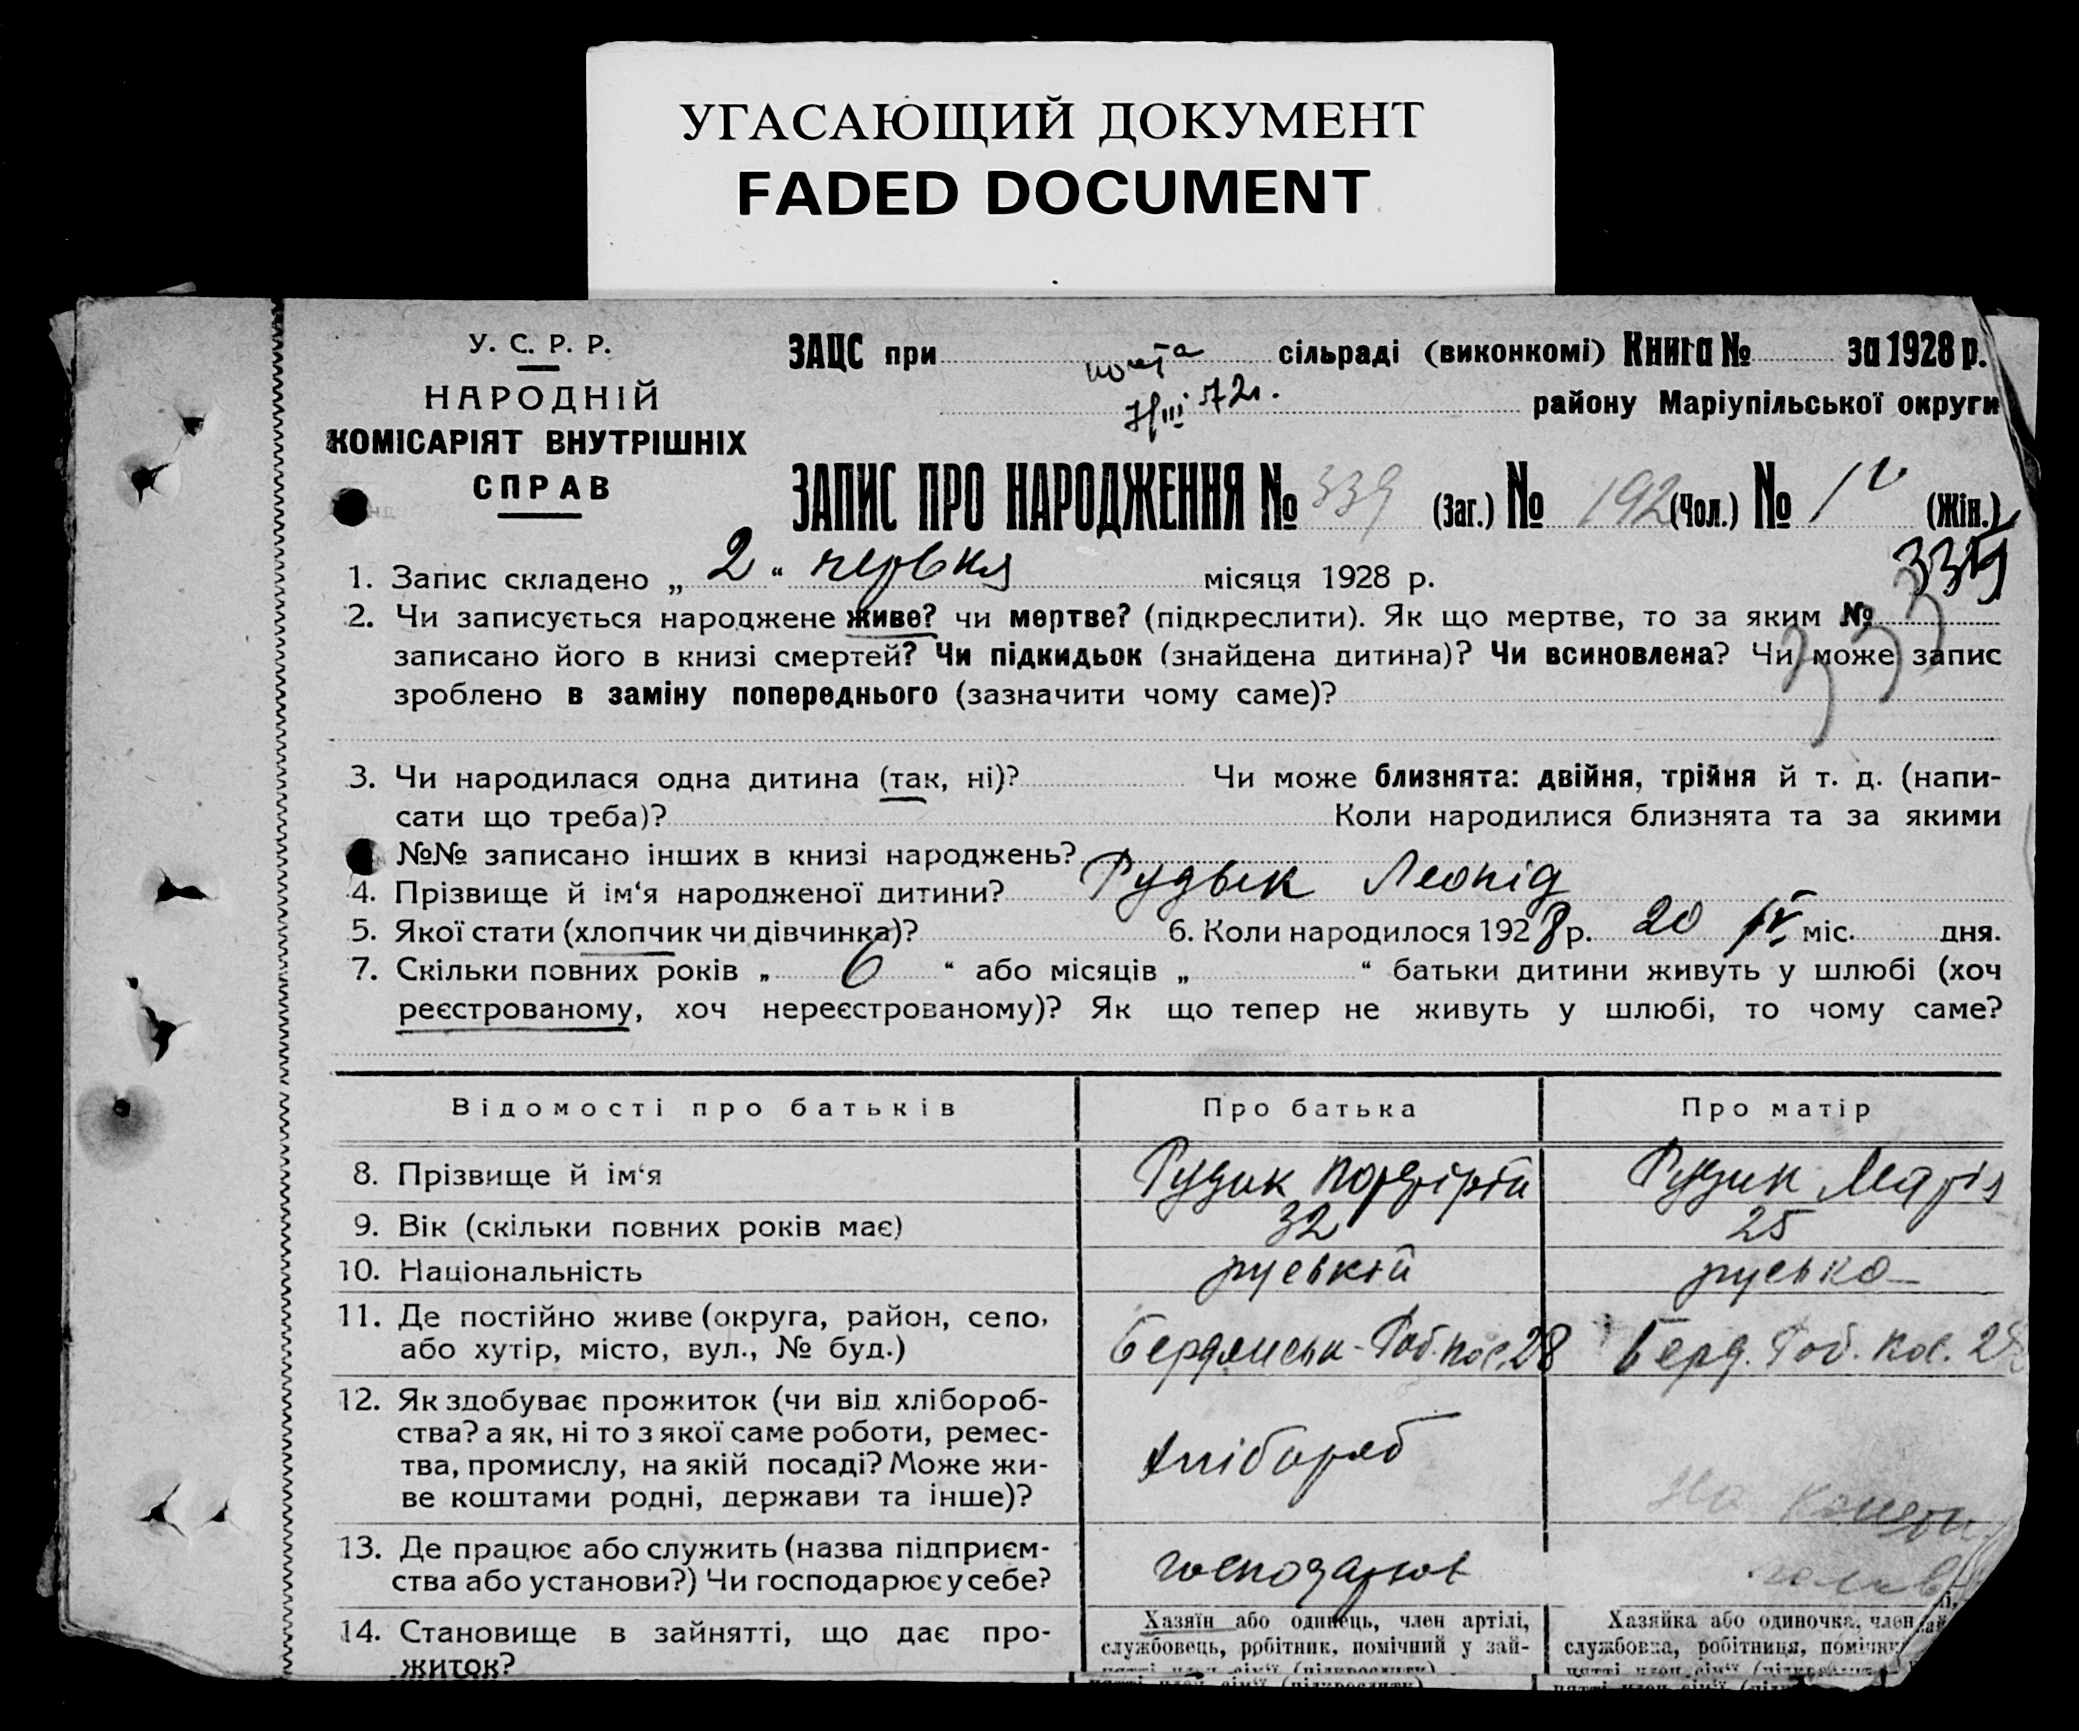 УГАСАЮЩИЙ ДОКУМЕНТ
FADED DOCUMENT
У. С. Р. Р.
НАРОДНІЙ
КОМІСАРІЯТ ВНУТРІШНІХ
СПРАВ
ЗАЦС при сільраді (виконкомі) Книга № за 1928 р.
району Маріупільської округи
ЗАПИС ПРО НАРОДЖЕННЯ № 339 (Заг.) № 192 (Чол.) № (Жін.)
339
1. Запис складено „ 2 “ червня місяця 1928 р.
2. Чи записується народжене живе? чи мертве? (підкреслити). Як що мертве, то за яким №
записано його в книзі смертей? Чи підкидьок (знайдена дитина)? Чи всиновлена? Чи може запис
зроблено в заміну попереднього (зазначити чому саме)?
3. Чи народилася одна дитина (так, ні)? Чи може близнята: двійня, трійня й т. д. (напи-
сати що треба)? Коли народилися близнята та за якими
№№ записано інших в книзі народжень?
4. Прізвище й ім‘я народженої дитини? Рудык Леонід
5. Якої стати (хлопчик чи дівчинка)? 6. Коли народилося 1928 р. 20 IV міс. дня.
7. Скільки повних років „ 6 “ або місяців „ “ батьки дитини живуть у шлюбі (хоч
реєстрованому, хоч нереєстрованому)? Як що тепер не живуть у шлюбі, то чому саме?
Відомості про батьків Про батька Про матір
8. Прізвище й ім‘я Рудик Порфірій Рудик Марія
9. Вік (скільки повних років має) 32 25
10. Національність руській руська
11. Де постійно живе (округа, район, село,
або хутір, місто, вул., № буд.) Бердянськ-Роб. пос. 28 Берд. Роб. пос. 28
12. Як здобуває прожиток (чи від хлібороб-
ства? а як, ні то з якої саме роботи, ремес-
тва, промислу, на якій посаді? Може жи-
ве коштами родні, держави та інше)? хлібороб
13. Де працює або служить (назва підприєм-
ства або установи?) Чи господарює у себе?
14. Становище в зайнятті, що дає про-
житок?
Хазяїн або одинець, член артілі,
службовець, робітник, помічний у зай-
Хазяйка або одиночка, член
службовка, робітниця,